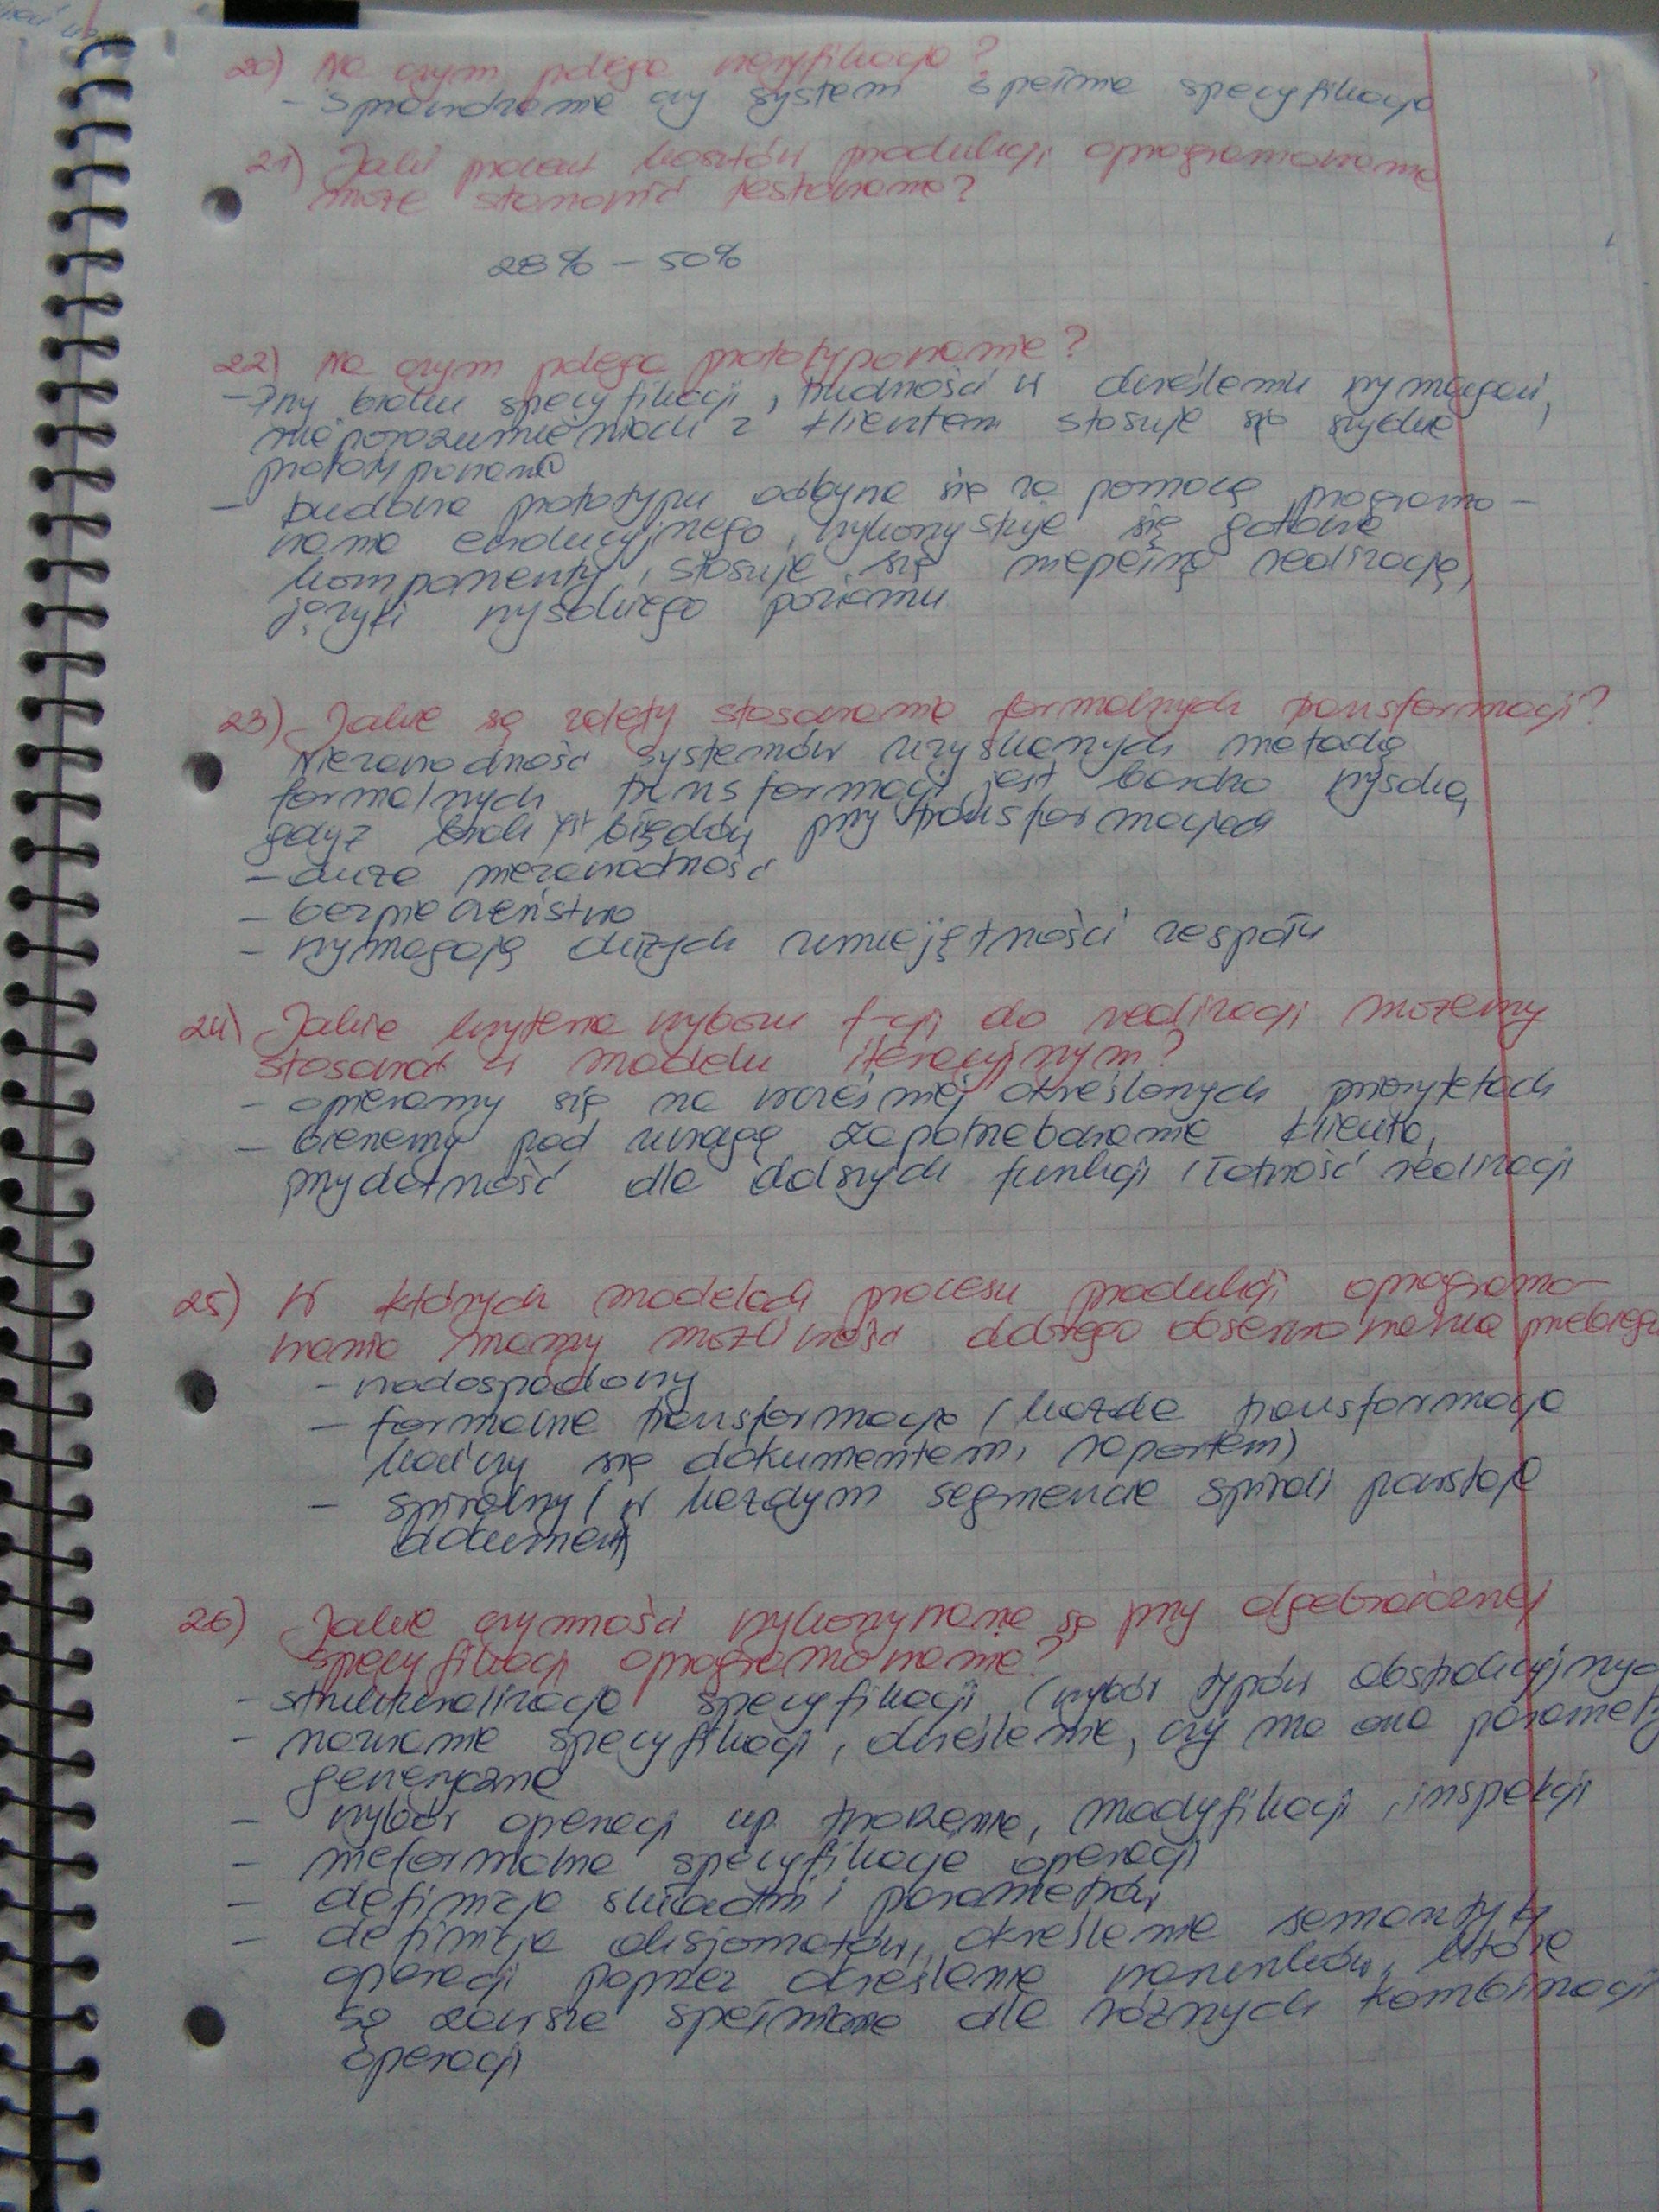 20) Na czym polega weryfikacja?
- Sprawdzenie czy system spełnia specyfikację
21) Jaki procent kosztów produkcji oprogramowania
może stanowić testowanie?
28% - 50%
22) Na czym polega prototypowanie?
- Przy braku specyfikacji, trudności w określeniu wymagań,
nieporozumieniach z klientem stosuje się szybkie
prototypowanie
- budowa prototypu odbywa się za pomocą programo-
wania ewolucyjnego, wykorzystuje się gotowe
komponenty, stosuje się niepełną realizację,
języki wysokiego poziomu
23) Jakie są zalety stosowania formalnych transformacji?
Niezawodność systemów uzyskanych metodą
formalnych transformacji jest bardzo wysoka,
gdyż brak jest błędów przy transformacjach
- duża niezawodność
- bezpieczeństwo
- wymagają dużych umiejętności zespołu
24) Jakie kryteria wyboru f-cji do realizacji możemy
stosować w modelu iteracyjnym?
- opieramy się na wcześniej określonych priorytetach
- bierzemy pod uwagę zapotrzebowanie klienta,
przydatność dla dalszych funkcji, łatwość realizacji
25) W których modelach procesu produkcji oprogramo-
wania mamy możliwość dobrego obserwowania przebiegu
- wodospadowy
- formalne transformacje (każda transformacja
kończy się dokumentem, raportem)
- spiralny (w każdym segmencie spirali powstaje
dokument)
26) Jakie czynności wykonywane są przy algebraicznej
specyfikacji oprogramowania?
- strukturalizacja specyfikacji (wybór typów abstrakcyjnyc
- nazwanie specyfikacji, określenie, czy ma ona parametry
generyczne
- wybór operacji np. tworzenie, modyfikacji, inspekcji
- nieformalna specyfikacja operacji
- definicja składni i parametrów
- definicja aksjomatów, określenie semantyki
operacji poprzez określenie warunków, które
są zawsze spełnione dla różnych kombinacji
operacji